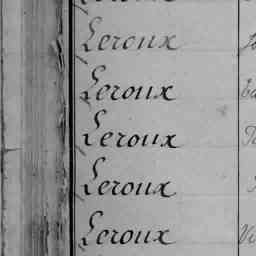 Leroux
Leroux
Leroux
Leroux
Leroux